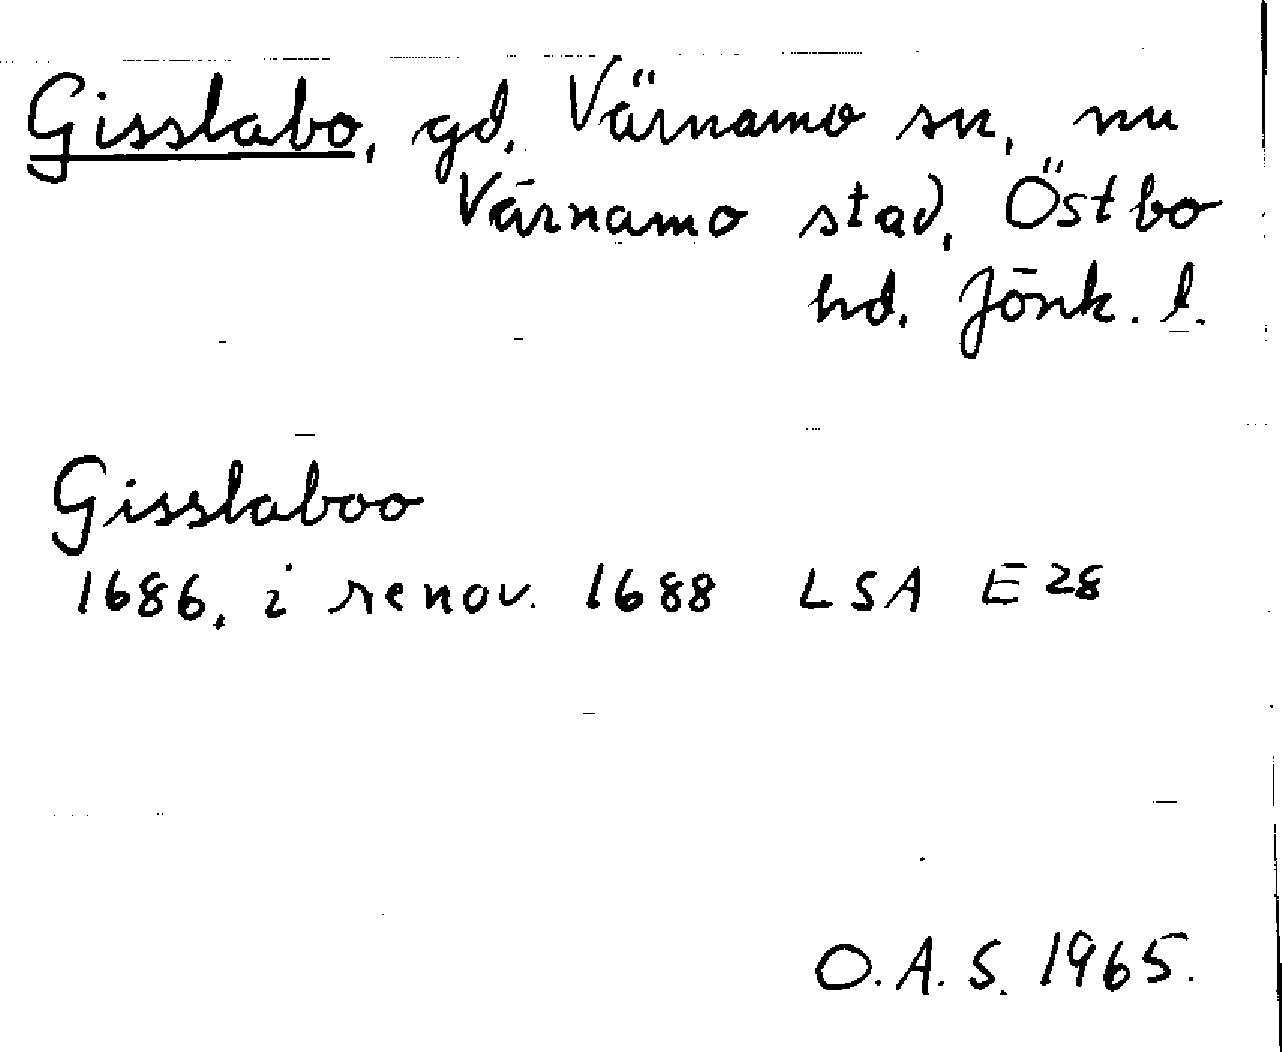 Gisslabo, gd, Värnamo sn, nu
Värnamo stad, Östbo
hd. Jönk. l.
Gisslaboo
1686, i renov. 1688 LSA E 28
O.A.S. 1965.